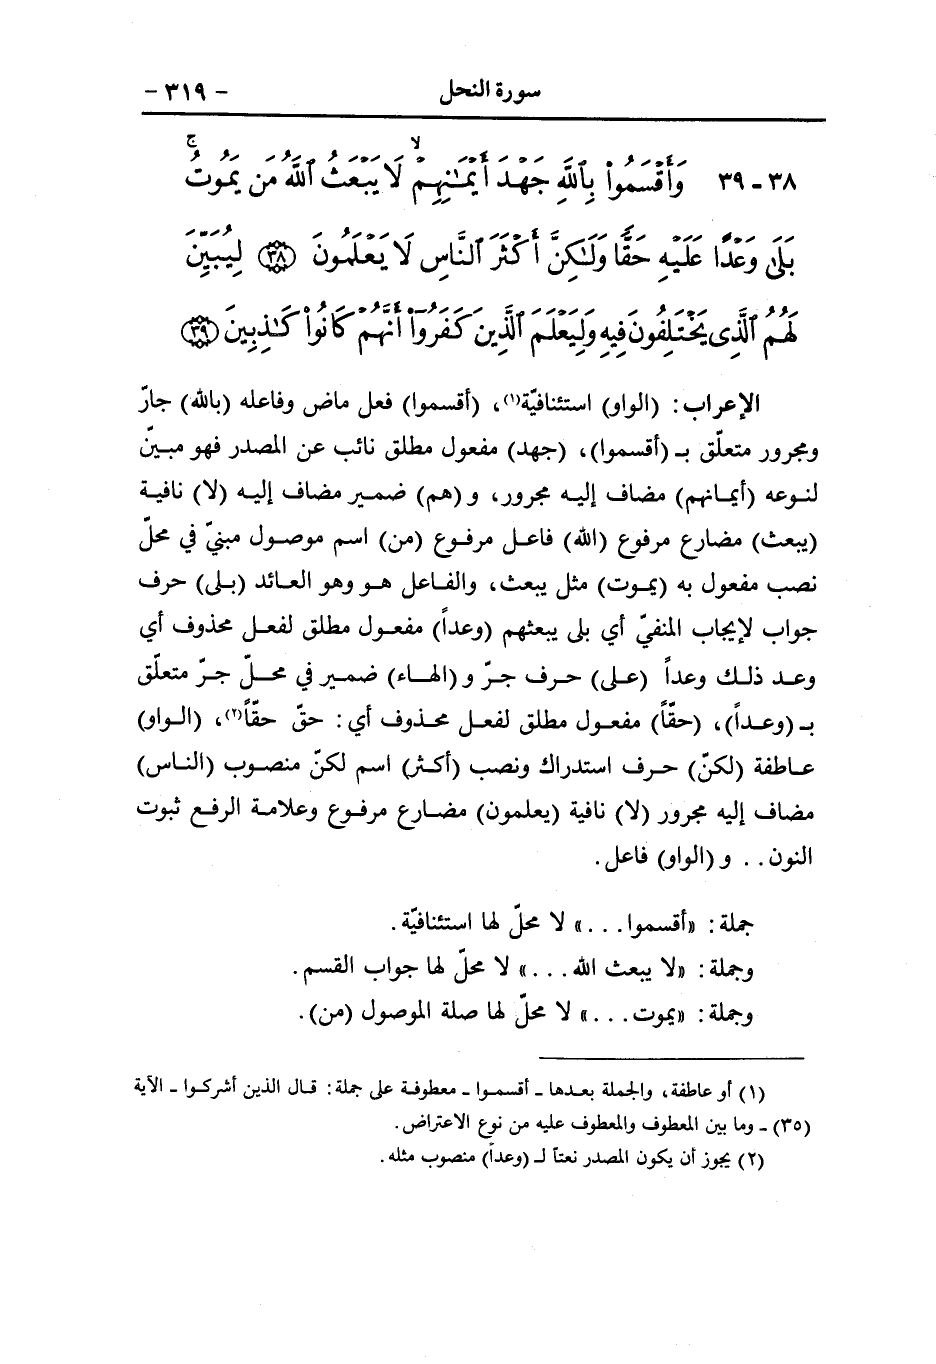 سورة النحل - ٣١٩ -
٣٨ - ٣٩ وَأَقْسَمُوا۟ بِٱللَّهِ جَهْدَ أَيْمَـٰنِهِمْ ۙ لَا يَبْعَثُ ٱللَّهُ مَن يَمُوتُ ۚ
بَلَىٰ وَعْدًا عَلَيْهِ حَقًّا وَلَـٰكِنَّ أَكْثَرَ ٱلنَّاسِ لَا يَعْلَمُونَ ﴿٣٨﴾ لِيُبَيِّنَ
لَهُمُ ٱلَّذِى يَخْتَلِفُونَ فِيهِ وَلِيَعْلَمَ ٱلَّذِينَ كَفَرُوٓا۟ أَنَّهُمْ كَانُوا۟ كَـٰذِبِينَ ﴿٣٩﴾
الإعراب: (الواو) استئنافيّة(١)، (أقسموا) فعل ماض وفاعله (بالله) جارّ
ومجرور متعلّق بـ (أقسموا)، (جهد) مفعول مطلق نائب عن المصدر فهو مبينّ
لنوعه (أيمانهم) مضاف إليه مجرور، و (هم) ضمير مضاف إليه (لا) نافية
(يبعث) مضارع مرفوع (الله) فاعل مرفوع (من) اسم موصول مبنيّ في محلّ
نصب مفعول به (يموت) مثل يبعث، والفاعل هو وهو العائد (بلى) حرف
جواب لإيجاب المنفيّ أي بلى يبعثهم (وعداً) مفعول مطلق لفعل محذوف أي
وعد ذلك وعداً (على) حرف جرّ و (الهاء) ضمير في محلّ جرّ متعلّق
بـ (وعداً)، (حقّاً) مفعول مطلق لفعل محذوف أي: حقّ حقّاً(٢)، (الواو)
عاطفة (لكنّ) حرف استدراك ونصب (أكثر) اسم لكنّ منصوب (الناس)
مضاف إليه مجرور (لا) نافية (يعلمون) مضارع مرفوع وعلامة الرفع ثبوت
النون.. و (الواو) فاعل.
جملة: «أقسموا...» لا محلّ لها استئنافيّة.
وجملة: «لا يبعث الله...» لا محلّ لها جواب القسم.
وجملة: «يموت...» لا محلّ لها صلة الموصول (من).
(١) أو عاطفة، والجملة بعدها ـ أقسموا ـ معطوفة على جملة: قال الذين أشركوا ـ الآية
(٣٥) ـ وما بين المعطوف والمعطوف عليه من نوع الاعتراض.
(٢) يجوز أن يكون المصدر نعتاً لـ (وعداً) منصوب مثله.